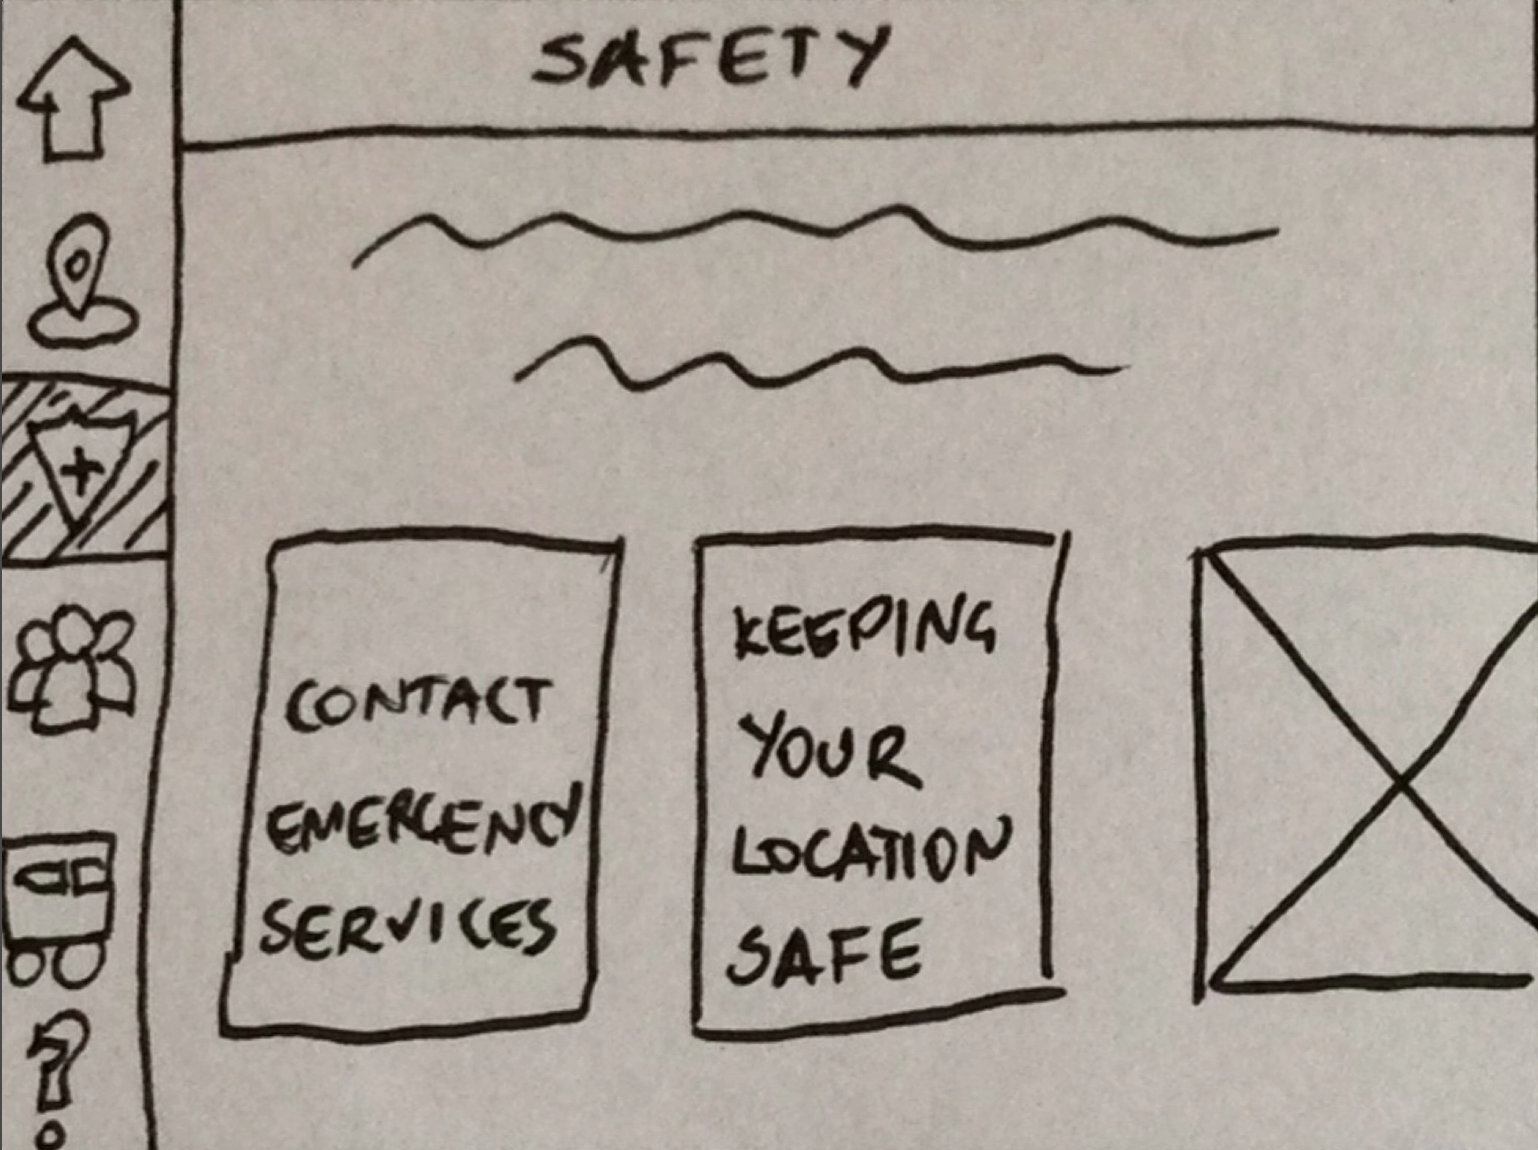 SAFETY
CONTACT
EMERGENCY
SERVICES
KEEPING
YOUR
LOCATION
SAFE
?